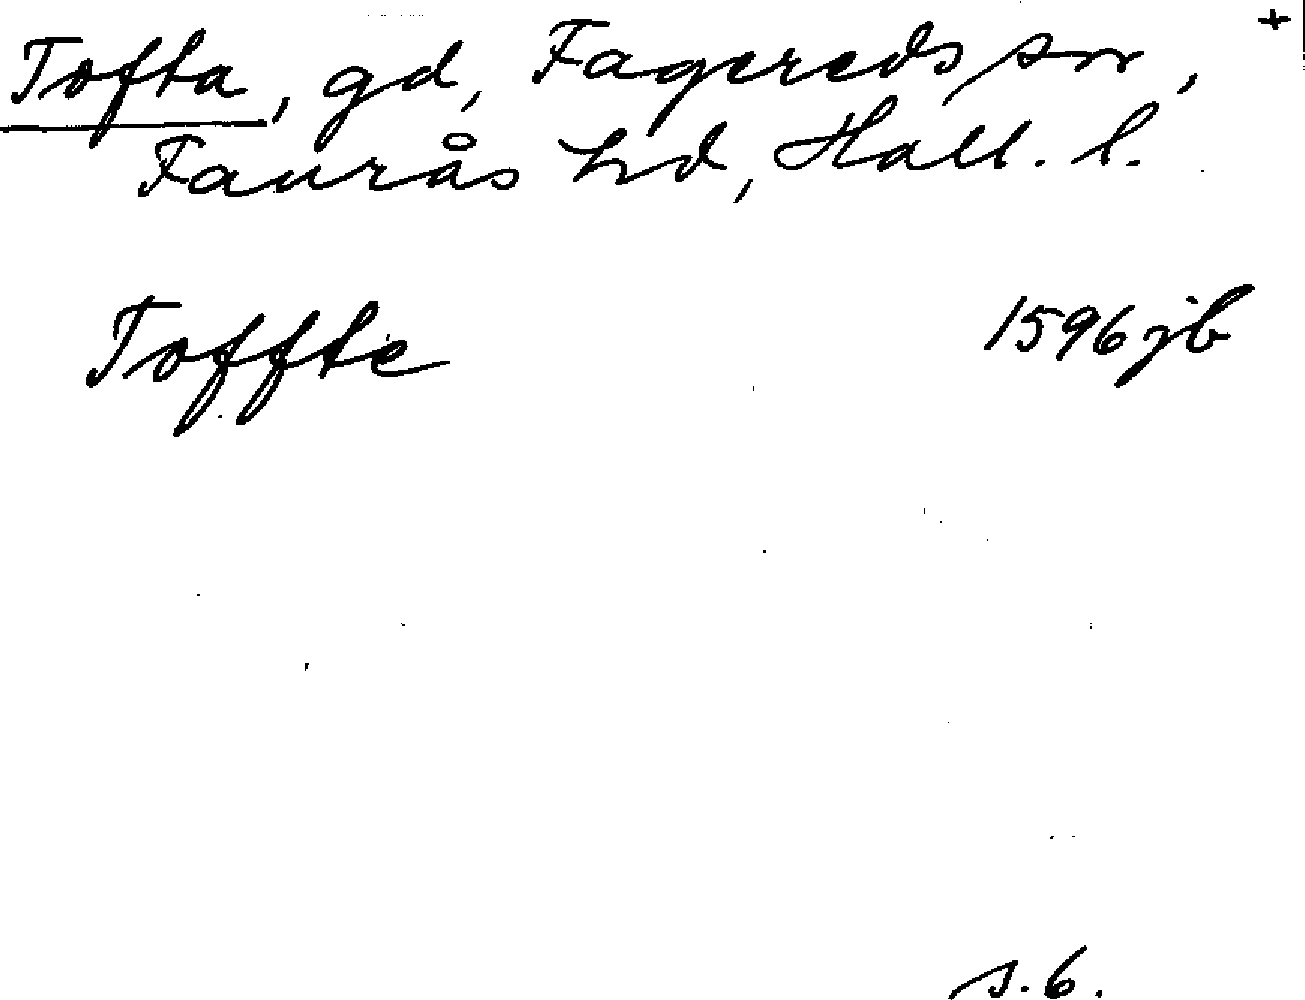 Tofta, gd, Fagereds sn, +
Faurås hd, Hall. l.
Toffte 1596 jb
s. 6.